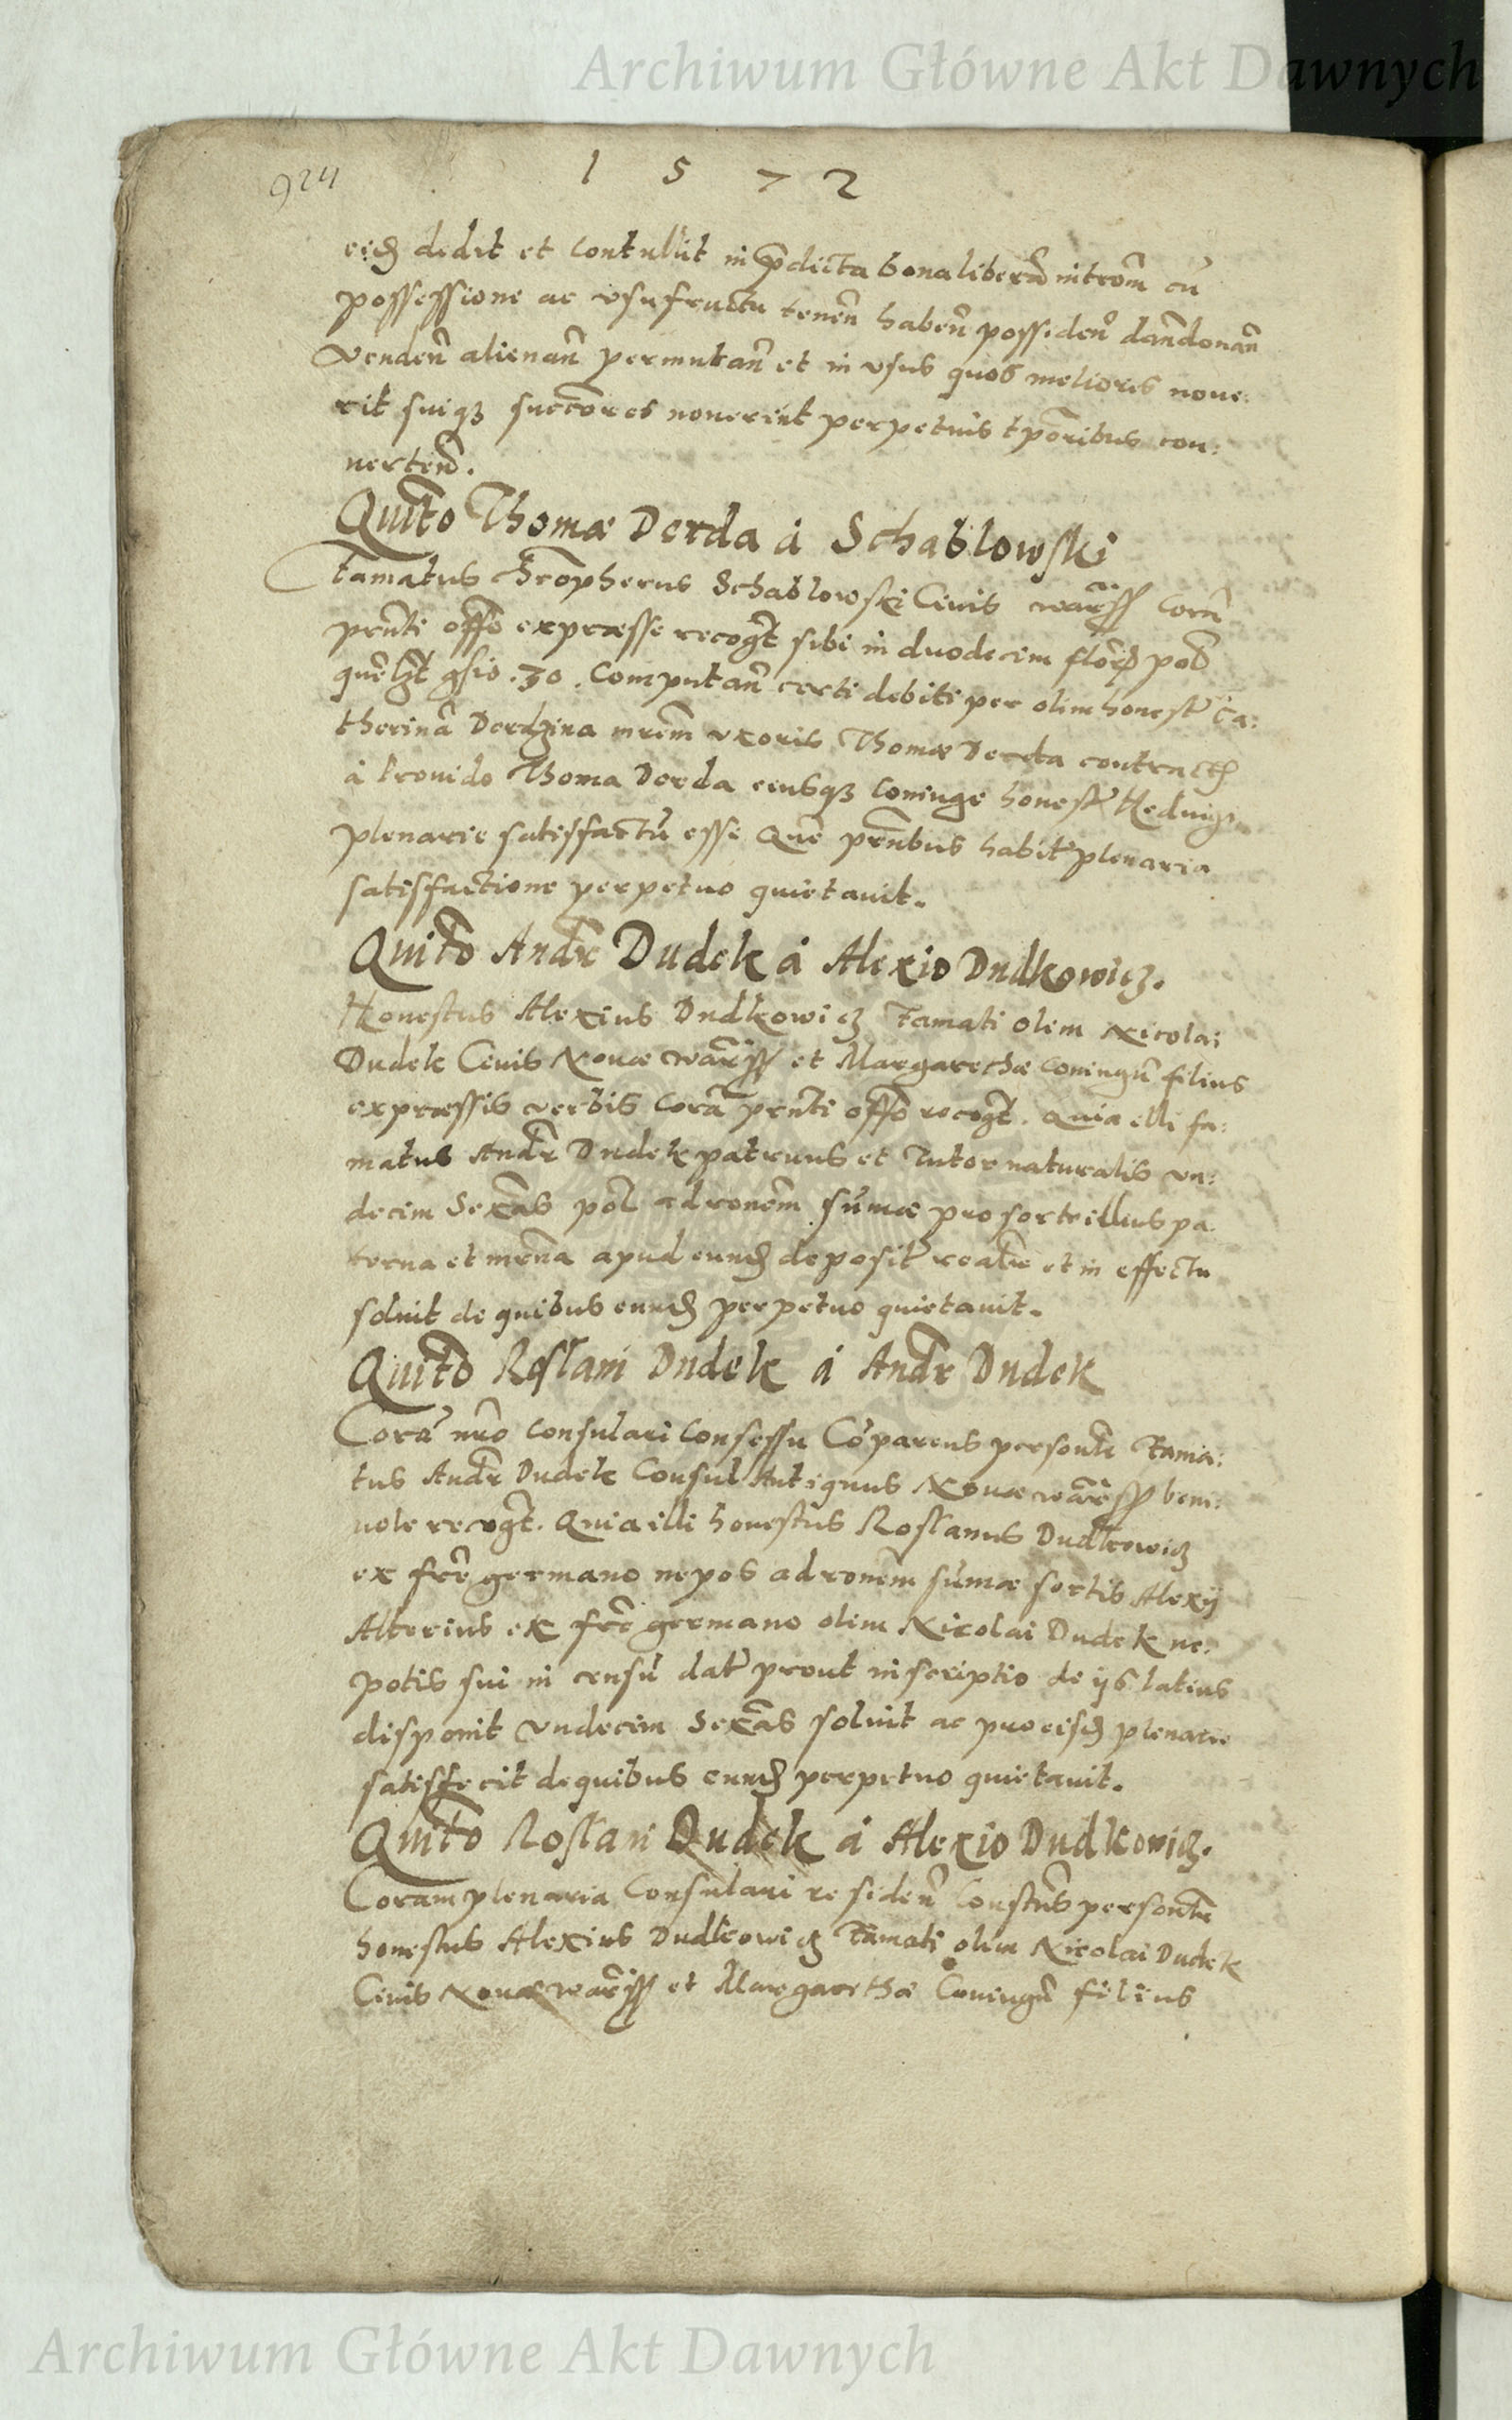 Archiwum Główne Akt Dawnych
924
1 5 7 2
eid dedit et contulit in pdicta bona liberã intrõm cũ
possessione ac vsufructu tenen̄ haben̄ possiden̄ dan̄ donan̄
venden̄ alienan̄ permutan̄ et in vsus quos meliores noue:
rit suiqз succores nouerint perpetuis tporibus con:
uerten̄.
Quitõ Thomæ Derda á Schablowski
Famatus Chrõpherus Schablowski Ciuis warss Corã
prn̄ti offõ expræsse recogt sibi in duodecim florẽ pol
quẽlzt gsio .30. Computan̄ certi debiti per olim honestã Ca:
therinã Derdzina mrẽm vxoris Thomæ Derda contracti
á Prouido Thoma Derda eiusqз Coniuge honestã Heduigi
plenarie satisfactũ esse Quẽ prn̄tibus habitã plenaria
satisfactione perpetuo quietauit.
Quitõ Andr̄ Dudek á Alexio Dudkowicz.
Honestus Alexius Dudkowicz Famati olim Nicolai
Dudek Ciuis Nouæ warss et Margarethæ Coniugũ filius
expræssis verbis Corã prn̄ti offõ recogt. Quia illi fa:
matus Andr̄ Dudek patruus et Tutor naturalis vn:
decim Sexãs pol ad ronẽm sũmæ pro sorte illius pa
terna et mrña apud eund deposit realr̄ et in effectu
soluit de quibus eund perpetuo quietauit.
Quitõ Rostani Dudek á Andr̄ Dudek
Corã nr̄o Consulari Consessu Cõparens personlr̄ Fama:
tus Andr̄ Dudek Consul Antiquus Nouæ warss bene:
uole recogt. Quia illi honestus Rostanus Dudkowicz
ex fr̄e germano nepos ad ronẽm sũmæ sortis Alexij
Alterius ex fr̄e germano olim Nicolai Dudek ne:
potis sui in censũ datã prout inscriptio de ijs latius
disponit vndecim Sexãs soluit ac pro eisd plenarie
satisfecit de quibus eund perpetuo quietauit.
Quitõ Rostani Dudek á Alexio Dudkowicz.
Coram plenaria Consulari residen̄ Constus personlr̄
honestus Alexius Dudkowicz Famati olim Nicolai Dudek
Ciuis Nouæ warss et Margarethæ Coniugũ filius
Archiwum Główne Akt Dawnych